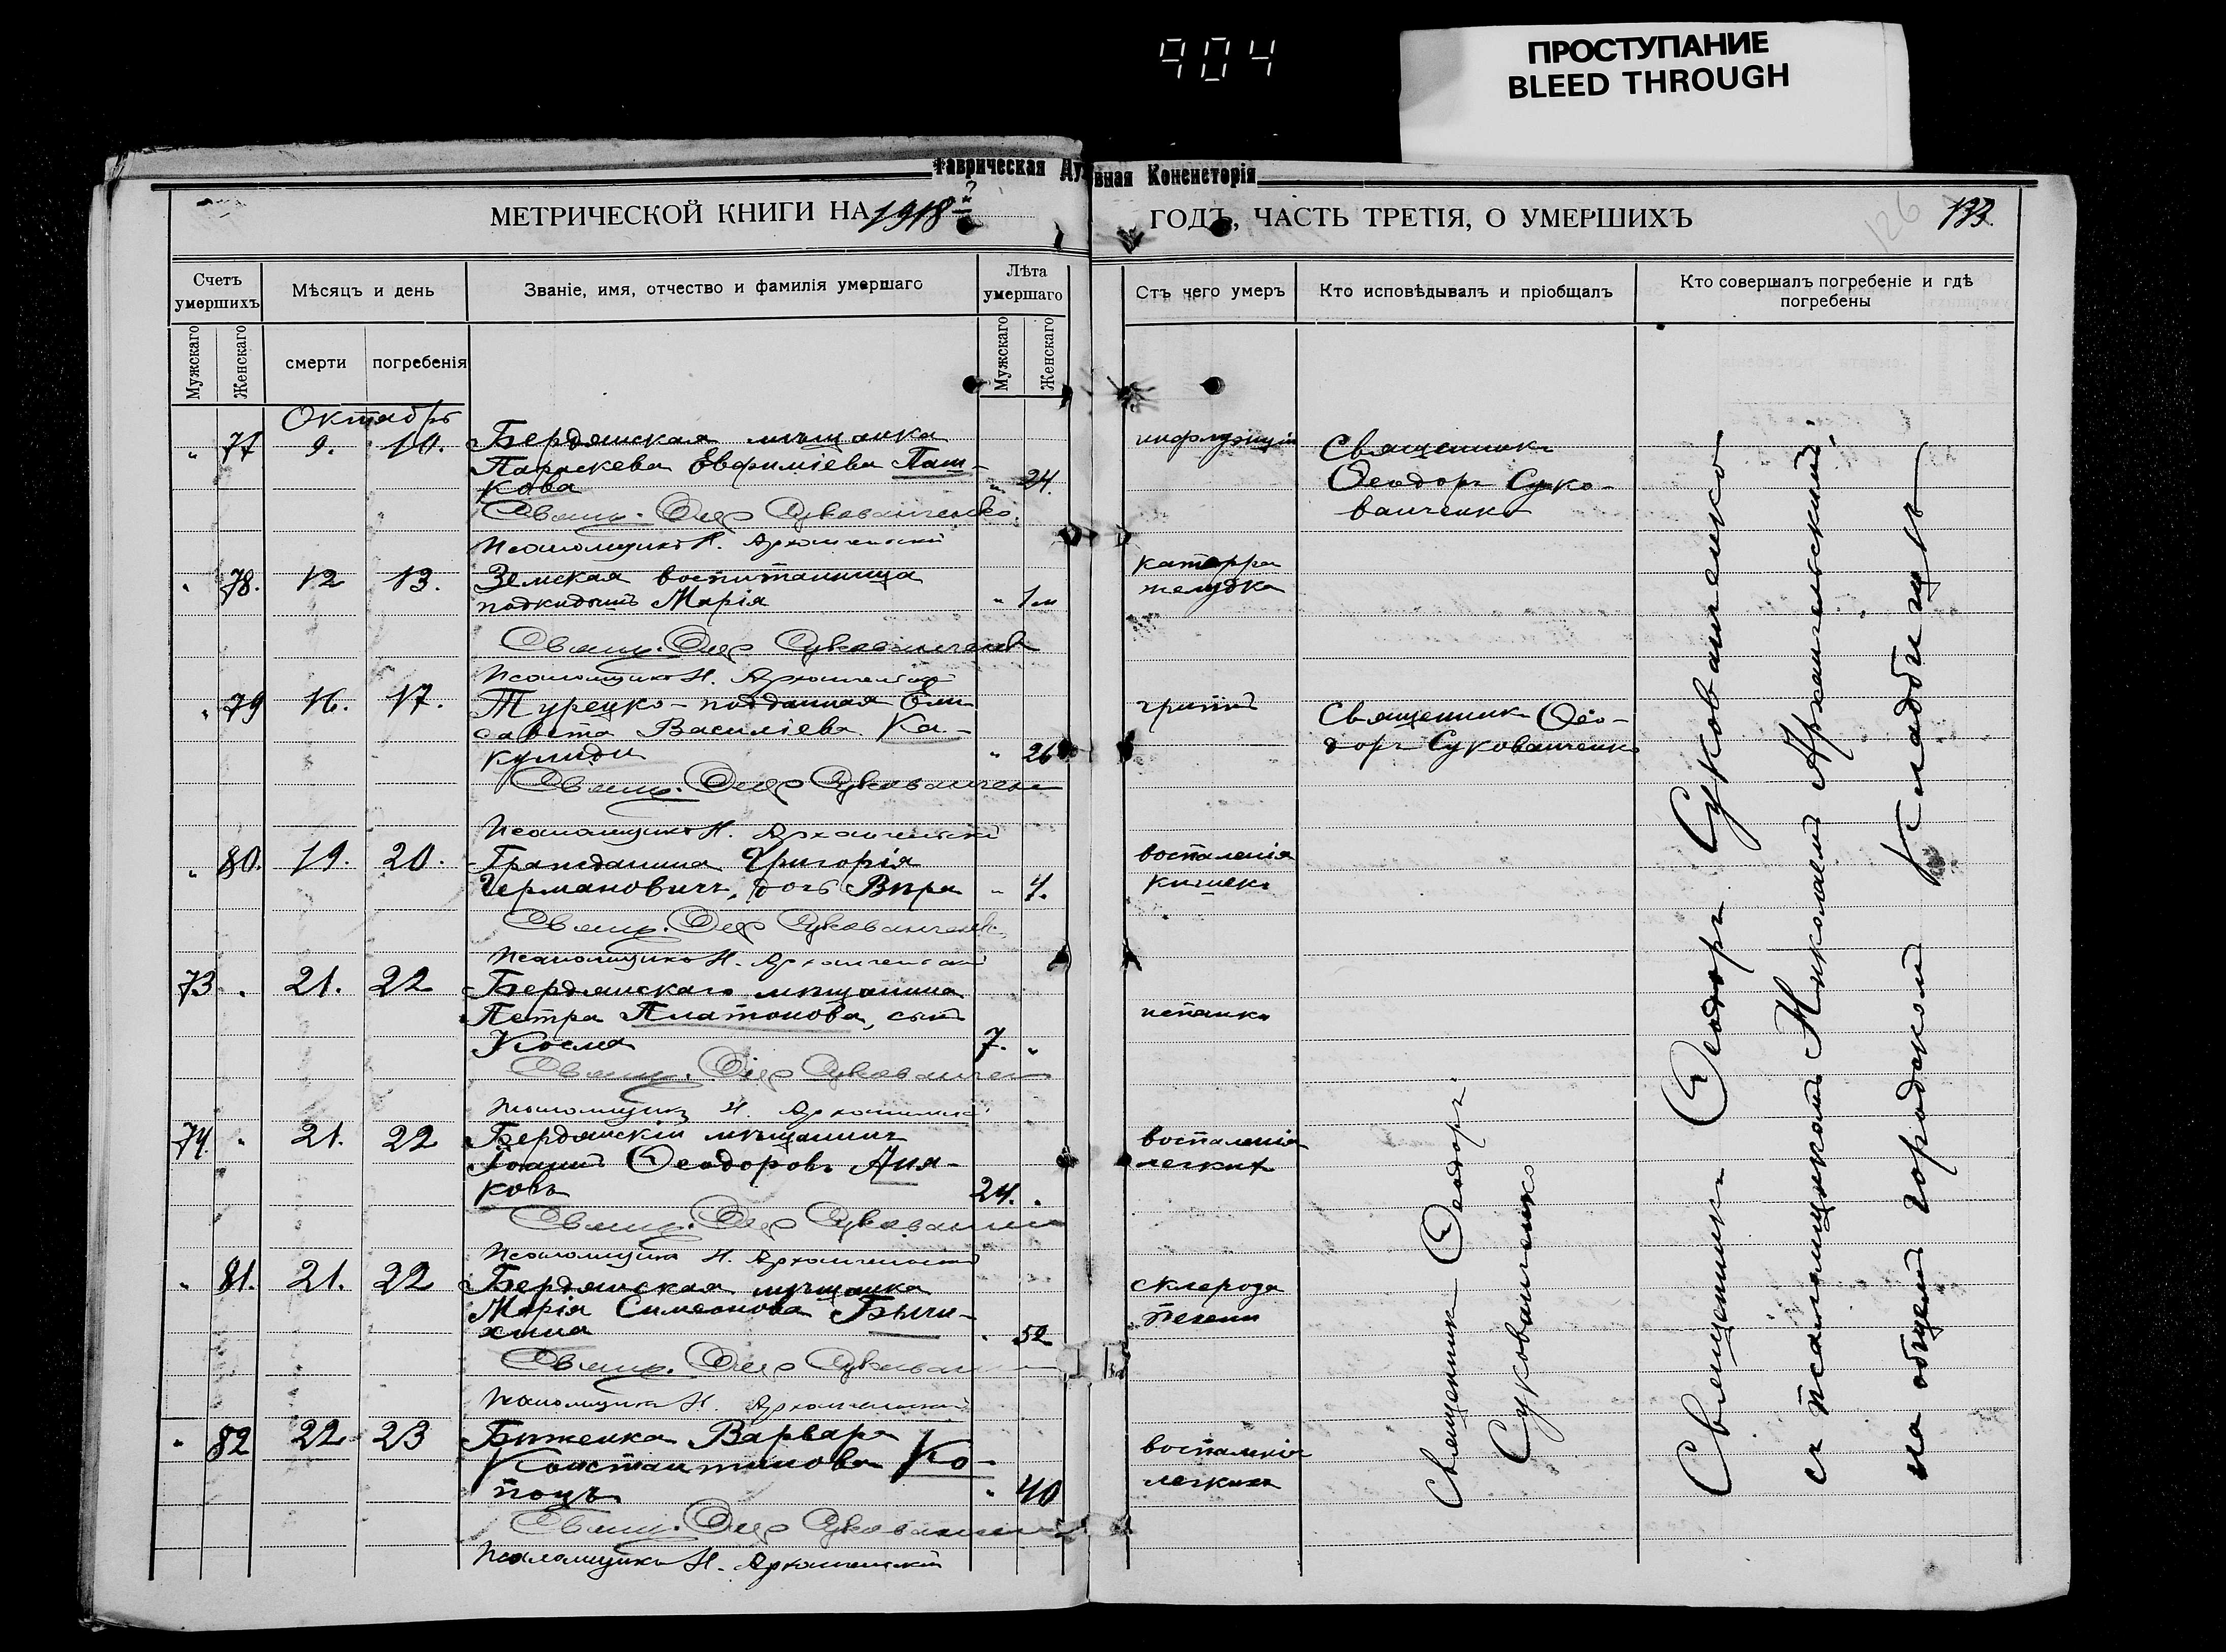 904
ПРОСТУПАНИЕ
BLEED THROUGH
Таврическая Духовная Консисторія
МЕТРИЧЕСКОЙ КНИГИ НА 1918 й ГОДЪ, ЧАСТЬ ТРЕТІЯ, О УМЕРШИХЪ
126
133
Счетъ умершихъ
Мѣсяцъ и день
Званіе, имя, отчество и фамилія умершаго
Лѣта умершаго
Отъ чего умеръ
Кто исповѣдывалъ и пріобщалъ
Кто совершалъ погребеніе и гдѣ погребены
Мужскаго
Женскаго
смерти
погребенія
Мужскаго
Женскаго
Октябрь
" 77 9. 10. Бердянская мѣщанка
Параскева Евфиміева Паш-
кова " 24.
инфлуэнція
Священникъ
Ѳеодоръ Суко-
ванченко
Свящ. Ѳеод Сукованченко
Псаломщикъ Н. Архангельскій
" 78. 12 13. Земская воспитанница
подкидышъ Марія " 1 м
катарра
желудка
Свящ. Ѳеод Сукованченко
Псаломщикъ Н. Архангельскій
" 79 16. 17. Турецко-подданная Ели-
савета Василіева Ка-
кулиди " 26
гриппъ
Священникъ Ѳео-
доръ Сукованченко
Свящ. Ѳеод Сукованченко
Псаломщикъ Н. Архангельскій
" 80. 19. 20. Гражданина Григорія
Германовичъ, дочь Вѣра " 4.
воспаленія
кишекъ
Свящ. Ѳеод Сукованченко
Псаломщикъ Н. Архангельскій
73 " 21. 22 Бердянскаго мѣщанина
Петра Платонова, сынъ
Косма 7. "
испанка
Свящ. Ѳеод Сукованченко
Псаломщикъ Н. Архангельскій
74. " 21. 22 Бердянскій мѣщанинъ
Іоаннъ Ѳеодоровъ Аня-
ковъ 24. "
воспаленія
легкихъ
Свящ. Ѳеод Сукованченко
Псаломщикъ Н. Архангельскій
" 81. 21. 22 Бердянская мѣщанка
Марія Симеонова Бычи-
хина " 52
склероза
печени
Свящ. Ѳеод Сукованченко
Псаломщикъ Н. Архангельскій
" 82 22 23 Бѣженка Варвара
Константинова Ко-
поць " 40
воспаленія
легкихъ
Свящ. Ѳеод Сукованченко
Псаломщикъ Н. Архангельскій
Священникъ Ѳеодоръ
Сукованченко
Священникъ Ѳеодоръ Сукованченко
съ псаломщикомъ Николаемъ Архангельскимъ,
на общемъ городскомъ кладбищѣ